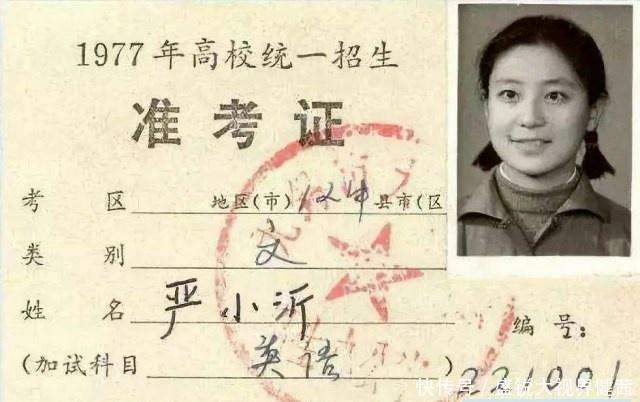 1977年高校统一招生
准考证
考 区 地区(市)12中县市(区
类 别 文
姓 名 严小沂
编 号:
(加试科目 英语 ) 231001
快传号/盛说大视界健茜